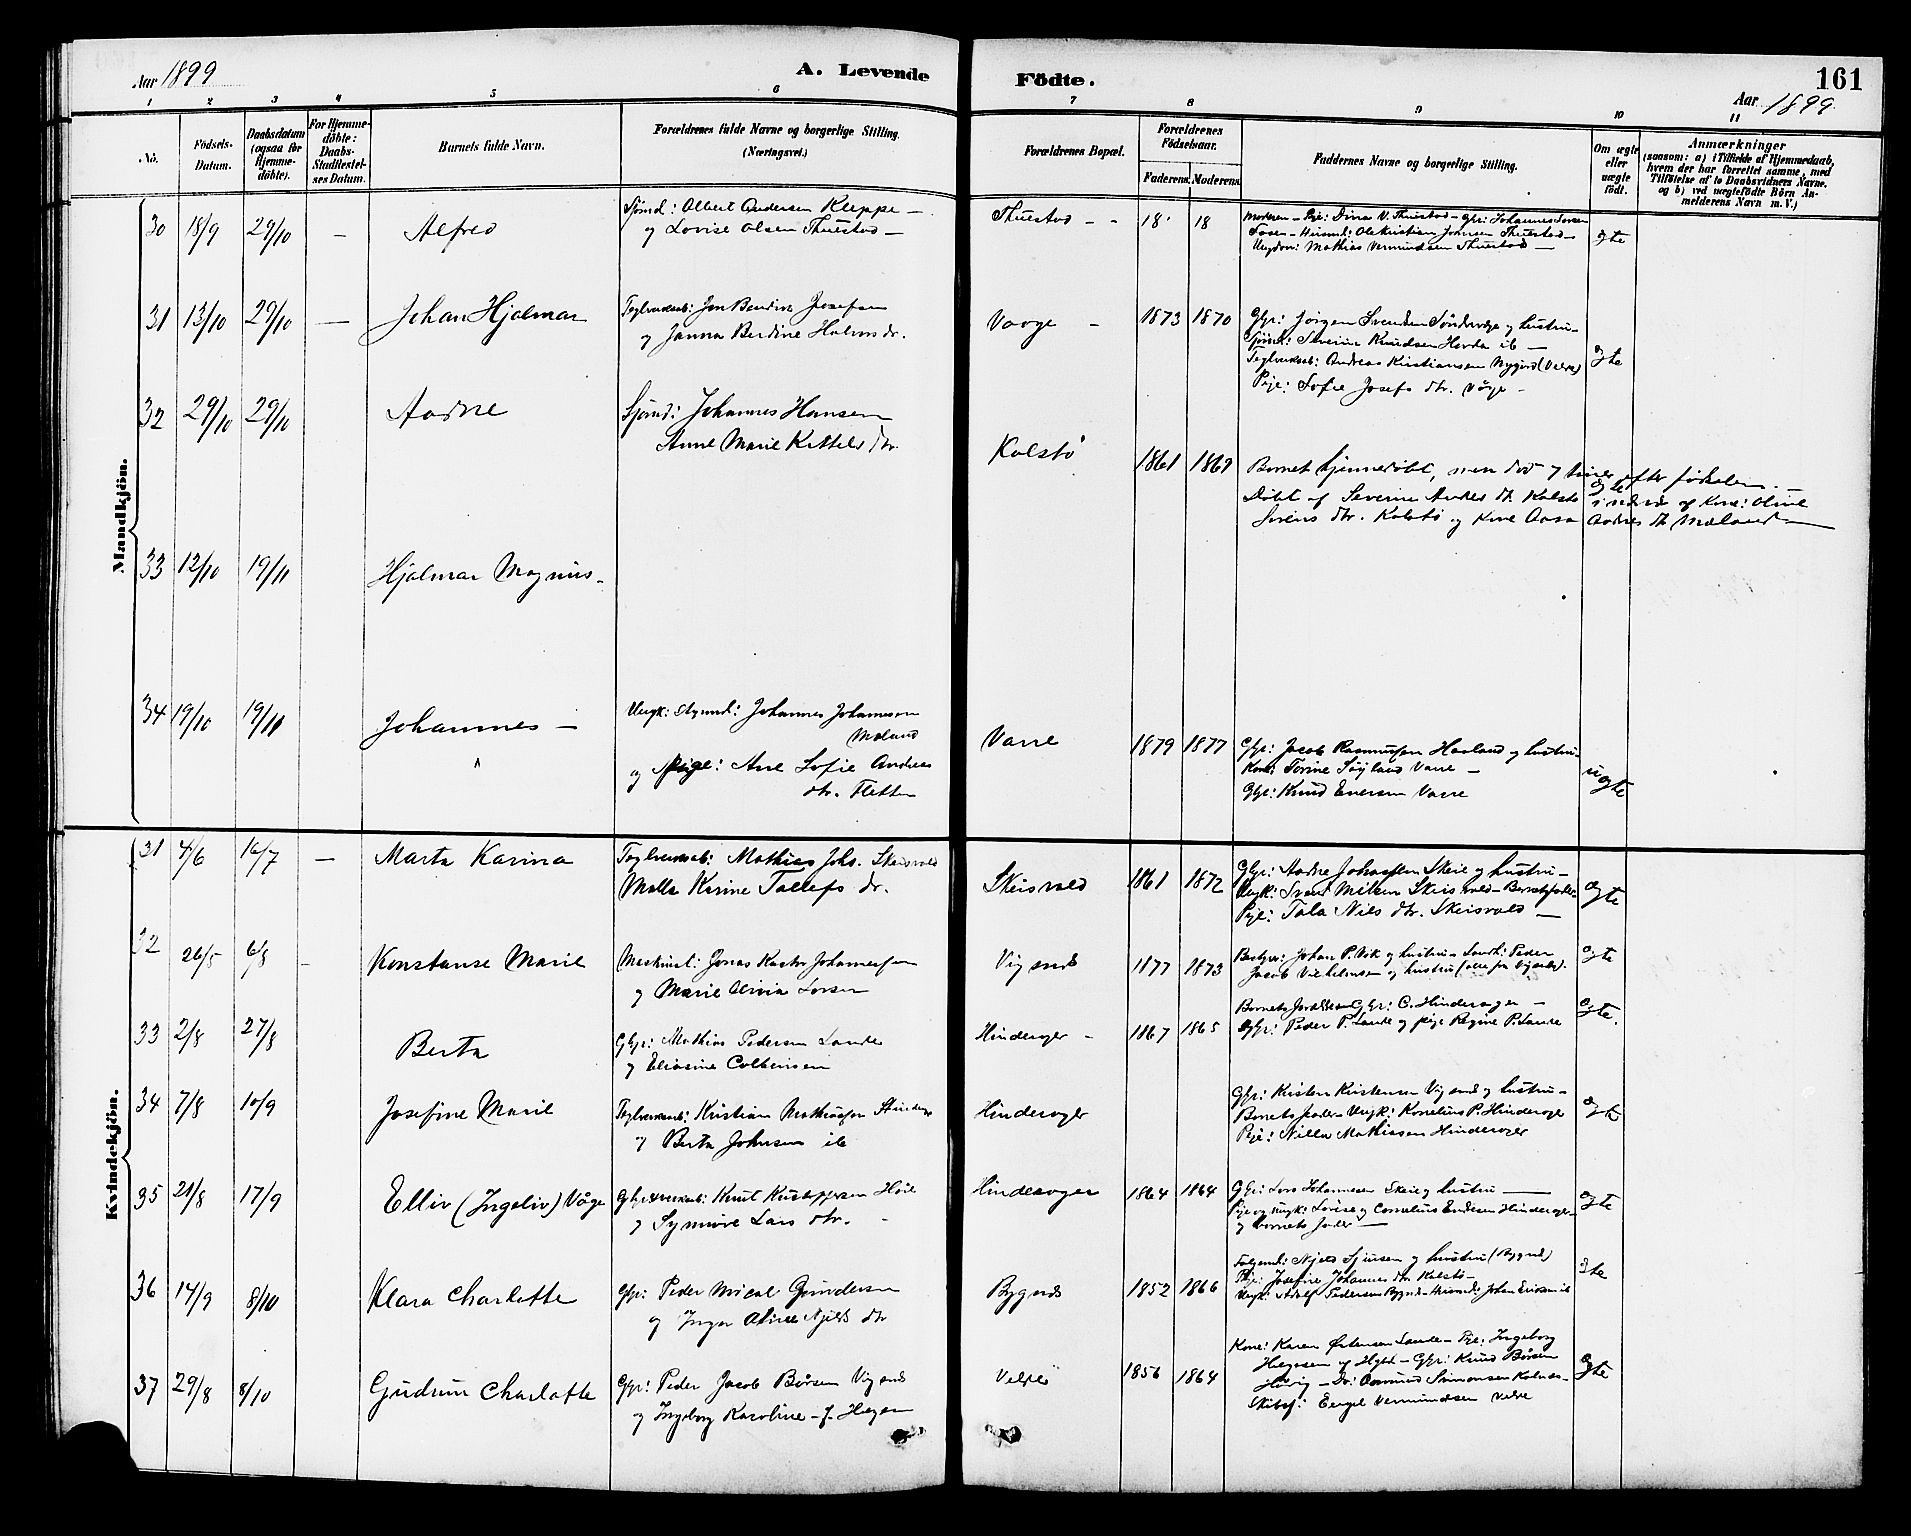 Aar 1899
A. Levende
Födte.
161
Aar 1899.
1 2 3 4 5 6 7 8 9 10 11
No.
Födsels-
Datum.
Daabsdatum
(ogsaa for
Hjemme-
döbte).
For Hjemme-
döbte:
Daabs-
Stadfæstel-
ses Datum.
Barnets fulde Navn.
Forældrenes fulde Navne og borgerlige Stilling.
(Næringsvei.)
Forældrenes Bopæl.
Forældrenes
Födselsaar.
Faderens.
Moderens.
Faddernes Navne og borgerlige Stilling.
Om ægte
eller
uægte
födt.
Anmærkninger
(saasom: a) i Tilfælde af Hjemmedaab,
hvem der har forrettet samme, med
Tilföielse af to Daabsvidners Navne.
og b) ved uægtefödte Börn An-
melderens Navn m. V.)
Mandkjön.
30 18/9 29/10 — Alfred
Sjömd: Albert Andersen Kleppe —
og Lovise Olsen Thuestad —
Thuestad - - 18 18
Moderen — Pige: Dina V. Thuestad — Gbr: Johannes Larsen
Fosen — Huusmd: Ole Kristian Johnsen Thuestad —
Ungdom: Mathias Vermundsen Thuestad —
ægte
31 13/10 29/10 — Johan Hjalmar
Teglverksarb: Jon Berdin Josefsen
og Janna Berdine Holmsdr.
Vaage - 1873 1870
Gbr: Jørgen Svendsen Søndrevåge og hustru —
Sjömd: Severin Knudsen Hovda ib —
Teglverksarb: Andreas Kristiansen Nygård (Velde)
Pige: Sofie Josefs dtr. Våge -
ægte
32 29/10 29/10 Aadne
Sjömd: Johannes Hansen
Anne Marie Kittels dtr.
Kolstø 1861 1869
Barnet hjemmedöbt, men död 7 timer efter födselen. —
Döbt af Severine Andres dtr Kolstø i nærvær af Kone: Oline
Sörens dtr. Kolstø og Kone Aasa Aadnes dtr Mæland —
ægte
33 12/10 19/11 Hjalmar Magnus -
34 19/10 19/11 Johannes —
Ungk: Styrmd: Johannes Johannesen
Mæland
og Pige: Ane Sofie Andreas
dtr. Fletten
Varre 1879 1877
Gbr: Jacob Rasmussen Haaland og hustru —
Kone: Torine Søyland Varre —
Gbr: Knud Eversen Varre
uægte
Kvindekjön.
31 4/6 16/7 — Marta Karina
Teglverksarb: Mathias Johs. Skeisvold
Malla Karine Tollefs dr.
Skeisvold 1861 1872
Gbr: Aadne Johnsen Skeie og hustru —
Ungk: Svend Nilsen Skeisvold — Barnets fader
Pige: Tala Nils dtr. Skeisvold —
ægte
32 26/5 6/8 - Konstanse Marie
Maskinist: Jonas Kastor Johannessen
og Marie Olivia Larsen
Vignæs 1877 1873
Bestyrer: Johan P. Vik og hustru — Peder
Jacob Vilhelmsen og hustru (alle fra Vignæs).
ægte
33 2/8 27/8 Berta
Gbr: Mathias Pedersen Lande
og Eliasine Colbensen
Hinderager - 1867 1865
Barnets forældre Gbr: C. Hinderager —
Gbr: Peder P. Lande og pige Regine P. Lande
ægte.
34 7/8 10/9 Josefine Marie
Teglverksarb: Kristian Mathiassen Hinderager
og Berta Johnsen ib
Hinderager
Gbr: Kristen Kristensen Vignæs og hustru —
Barnets fader — Ungk: Kornelius P. Hinderager
Pige: Nilla Mathiasen Hinderager
ægte
35 21/8 17/9 Elliv (Ingeliv) Våge
Knut Kristoffersen Høie
og Synnøve Lars dtr. -
Hinderager 1864 1864
Gbr: Lars Johannesen Skeie og hustru —
Pige og Ungk: Lovise og Cornelius Endresen Hinderager —
og barnets fader —
ægte
36 14/9 8/10 Klara Charlotte
Gbr: Peder Mical Gundersen
og Inger Oline Njels dtr
Bygnæs 1852 1866
Følgemd: Njels Sjursen og hustru (Bygnæs)
Pige: Josefine Johannes dtr Kolstø —
Ungk: Adolf Pedersen Bygnæs — Huusmd: Johan Eriksen ib
ægte
37 29/8 8/10 Gudrun Charlotte
Gbr: Peder Jacob Börsen Vignæs
og Ingeborg Karoline — f. Hegen
Velde 1856 1864
Kone: Karen Østensen Lande — Pige: Ingeborg
Helgesen — Gbr: Knud Börsen
Hövig — Dr: Aamund Simonsen Kalnes —
Skibsf: Engel Vermundsen Velde
ægte